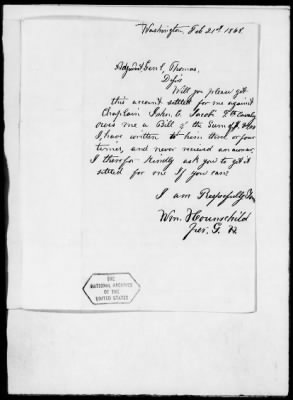 Washington, Feb 21st 1868.
Adjudt Genl. Thomas,
Will you please get
this account settled for me against
Chaplain John C. Jacobi Cavalry
owes me a Bill of the Sum of
I have written to him three or four
times, and never received an answer,
I therefor kindly ask you to get it
settled for me If you can
I am Respectfully
Wm. Hounschild
Per. G. W
THE
NATIONAL ARCHIVES
OF THE
UNITED STATES